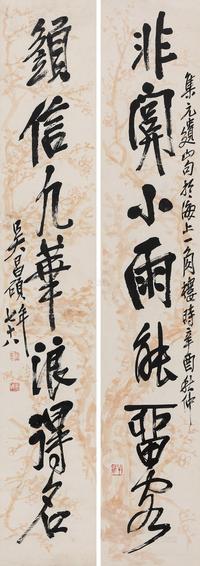 集元遺山句於海上一角樓時辛酉秋仲
非關小雨能畱客
信九華浪得名
吳昌碩年七十八